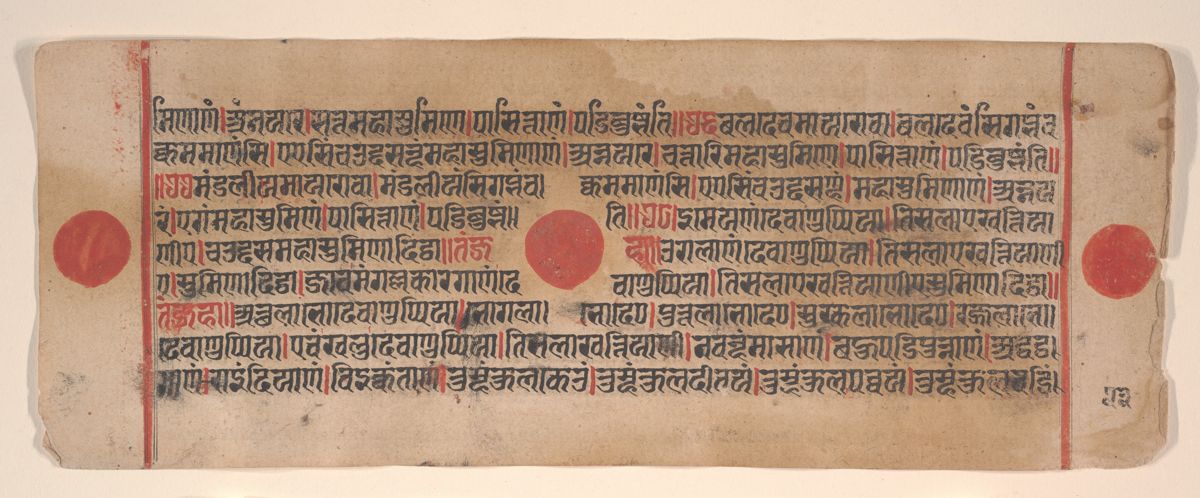 मिणाणं।अन्नतरे।सत्तमहासुमिणे।पासित्ताणं।पडिबुज्झंति॥ बलदेवमातरोवा।बलदेवंसिगब्भंव
क्कममाणंसि।एएसिंचउद्दसण्हंमहासुमिणाणं।अन्नतरे।चत्तारिमहासुमिणे।पासित्ताणं।पडिबुज्झंति॥
॥ मंडलीयमातरोवा।मंडलीयंसिगब्भंव। क्कममाणंसि।एएसिंचउद्दसण्हं।महासुमिणाणं।अन्नत
रं।एगंमहासुमिणं।पासित्ताणं।पडिबुज्झं॥ ति॥ इमेयाणंदेवाणुप्पिया।तिसलाएखत्तिया
णीए।चउद्दसमहासुमिणादिट्ठा॥ उरालाणंदेवाणुप्पिया।तिसलाएखत्तियाणी
ए।सुमिणादिट्ठा।जावमंगल्लकारगाणंदे वाणुप्पिया।तिसलाएखत्तियाणीएसुमिणादिट्ठा॥
तंजहा॥अत्थलाभोदेवाणुप्पिया।भोगला भोदे०।पुत्तलाभोदे०।सुक्खलाभोदे०।रज्जलाभो॥
देवाणुप्पिया।एवंखलुदेवाणुप्पिया।तिसलाखत्तियाणी।नवण्हंमासाणं।बहुपडिपुन्नाणं।अद्धट्ठ
माणं।राइंदियाणं।विइक्कंताणं।तुम्हंकुलकेउं।तुम्हंकुलदीवं।तुम्हंकुलपव्वयं।तुम्हंकुलवडिं